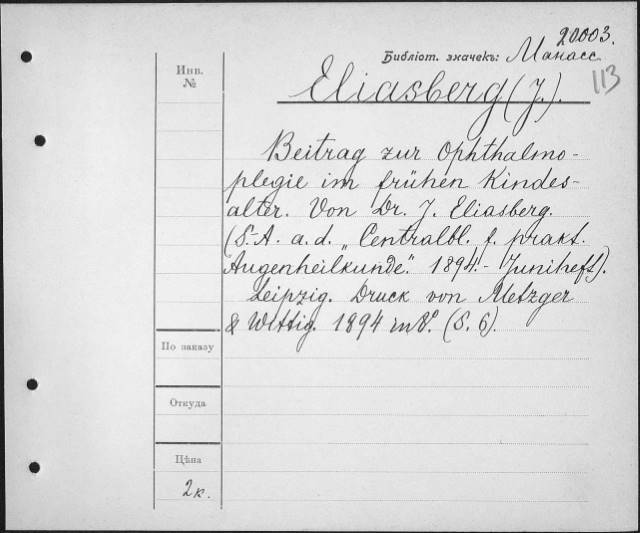 20003.
Библіот. значекъ: Манасс.
113
Инв.
№
Eliasberg (J.).
Beitrag zur Ophthalmo-
plegie im frühen Kindes-
alter. Von Dr. J. Eliasberg.
(S.-A. a. d. „Centralbl. f. prakt.
Augenheilkunde". 1894. - Juniheft).
Leipzig. Druck von Metzger
& Wittig. 1894 in 8°. (S. 6).
По заказу
Откуда
Цѣна
2 к.